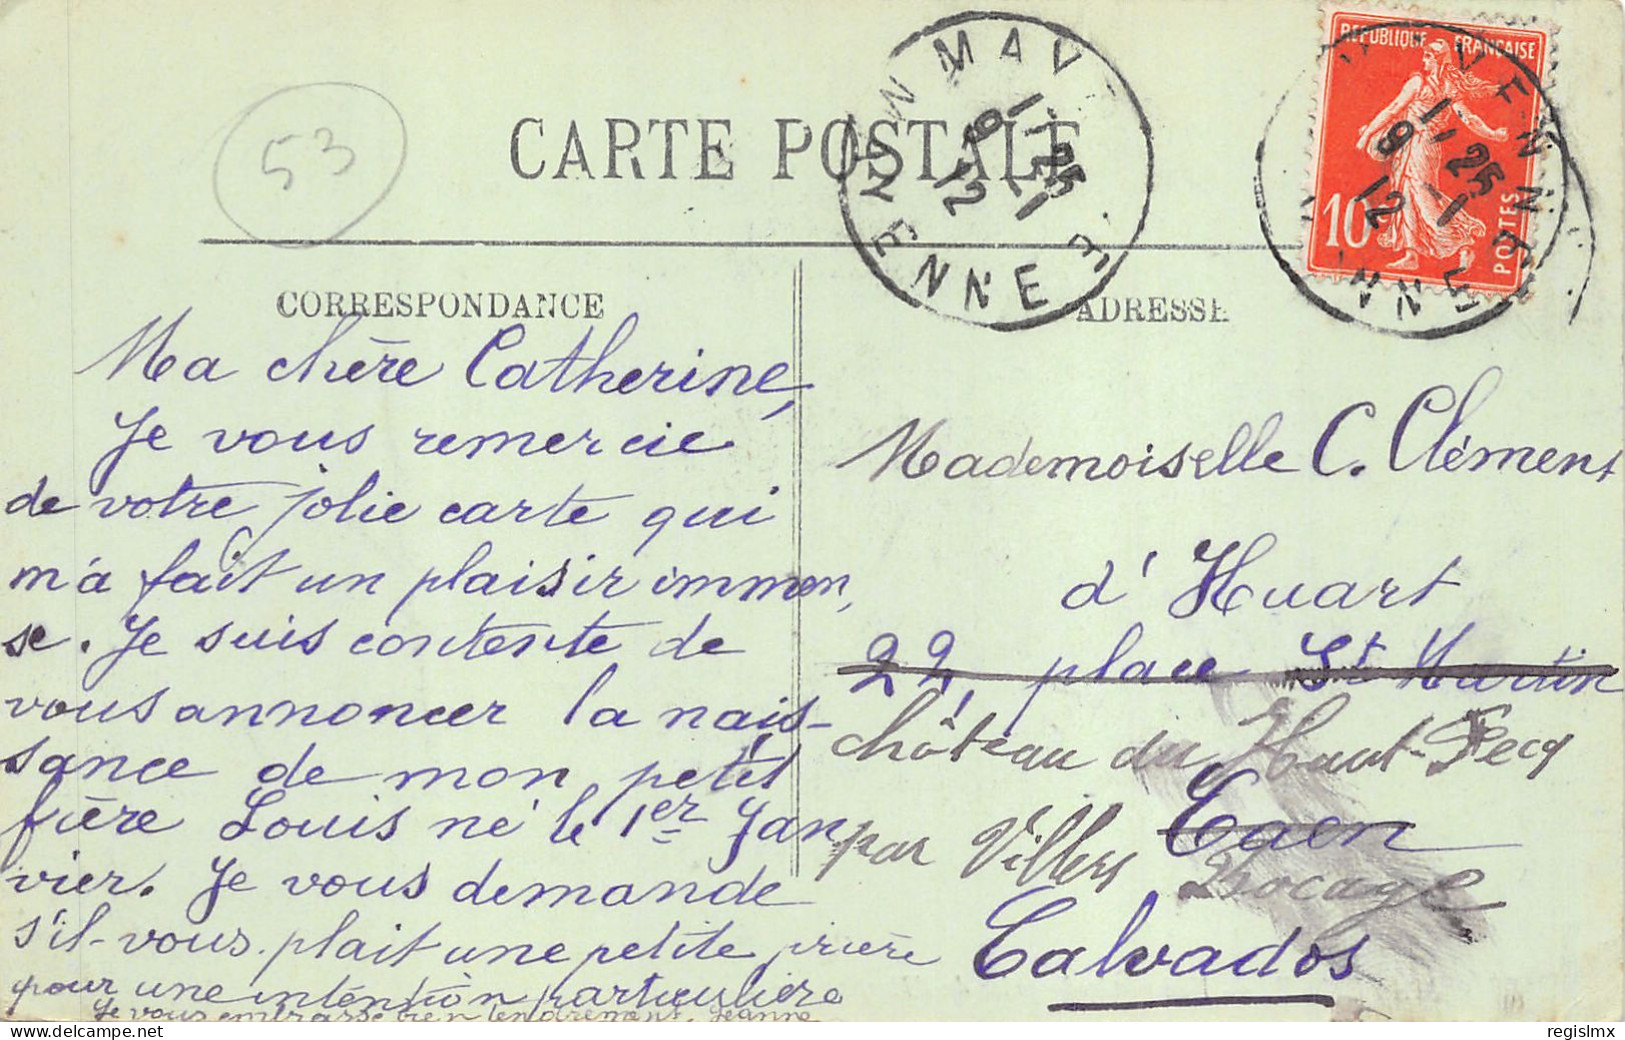 53
CARTE POSTALE
MAYENNE
MAYENNE
11 25
9 - 1
12
REPUBLIQUE FRANCAISE
10
POSTES
MAYENNE
MAYENNE
11 25
9 - 1
12
CORRESPONDANCE
Ma chère Catherine,
Je vous remercie
de votre jolie carte qui
m'a fait un plaisir immen,
se. Je suis contente de
vous annoncer la nais-
sance de mon petit
frère Louis né le 1er Jan
vier. Je vous demande
s'il-vous-plait une petite prière
pour une intention particulière
Je vous embrasse bien tendrement. Jeanne
ADRESSE
Mademoiselle C. Clément
d'Huart
22, place St Martin
château du Haut-Pecq
Caen
par Villers Bocage
Calvados
regislmx